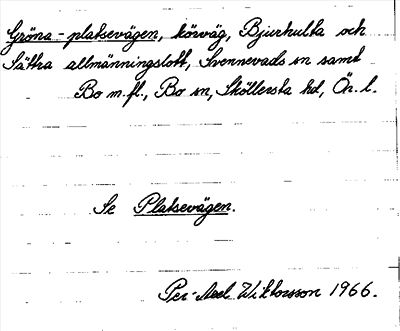 Gröna-platsevägen, körväg, Bjurhulta och
Sättra allmänningslott, Svennevads sn samt
Bo m.fl., Bo sn, Sköllersta hd, Ör. l.
Se Platsevägen.
Per-Axel Wiktorsson 1966.